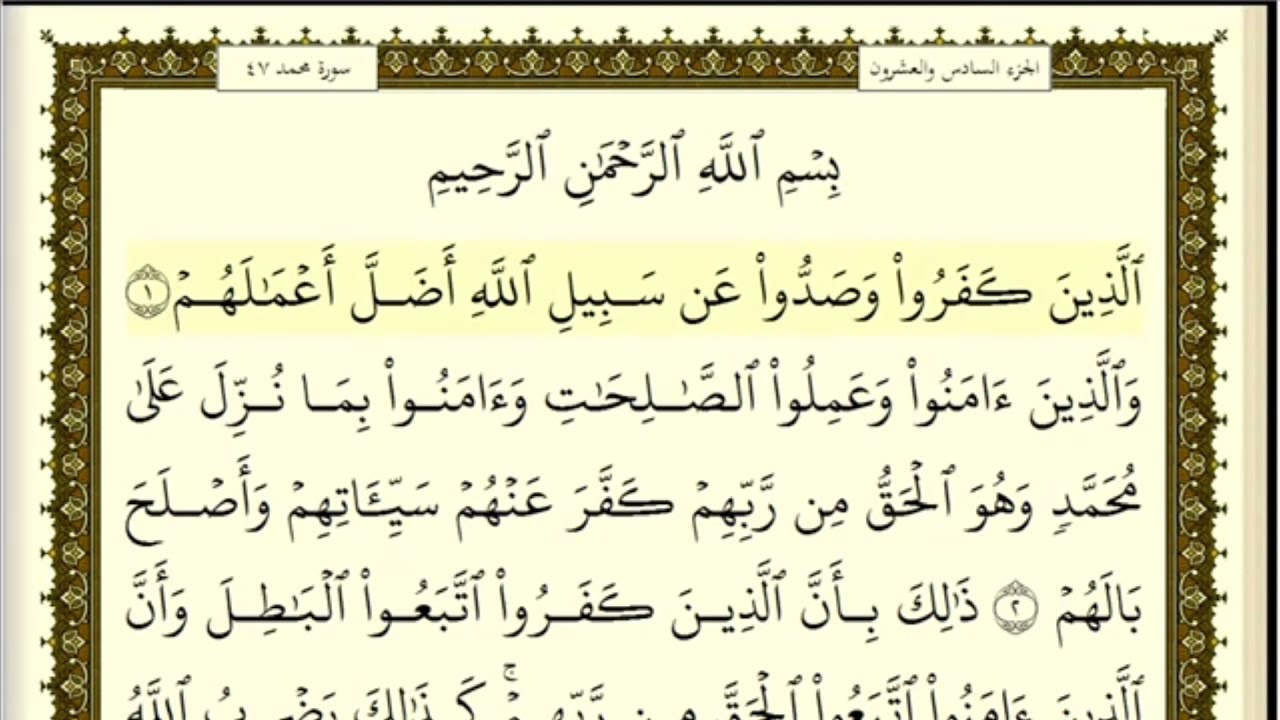 الجزء السادس والعشرون
سورة محمد ٤٧
بِسْمِ ٱللَّهِ ٱلرَّحْمَٰنِ ٱلرَّحِيمِ
ٱلَّذِينَ كَفَرُوا۟ وَصَدُّوا۟ عَن سَبِيلِ ٱللَّهِ أَضَلَّ أَعْمَٰلَهُمْ ١
وَٱلَّذِينَ ءَامَنُوا۟ وَعَمِلُوا۟ ٱلصَّٰلِحَٰتِ وَءَامَنُوا۟ بِمَا نُزِّلَ عَلَىٰ
مُحَمَّدٍ وَهُوَ ٱلْحَقُّ مِن رَّبِّهِمْ كَفَّرَ عَنْهُمْ سَيِّـَٔاتِهِمْ وَأَصْلَحَ
بَالَهُمْ ٢ ذَٰلِكَ بِأَنَّ ٱلَّذِينَ كَفَرُوا۟ ٱتَّبَعُوا۟ ٱلْبَٰطِلَ وَأَنَّ
ٱلَّذِينَ ءَامَنُوا۟ ٱتَّبَعُوا۟ ٱلْحَقَّ مِن رَّبِّهِمْ ۚ كَذَٰلِكَ يَضْرِبُ ٱللَّهُ